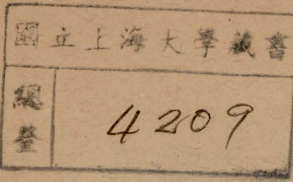 國立上海大學藏書
總登
4209